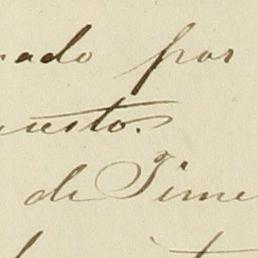 ado por
uesto.
de Time